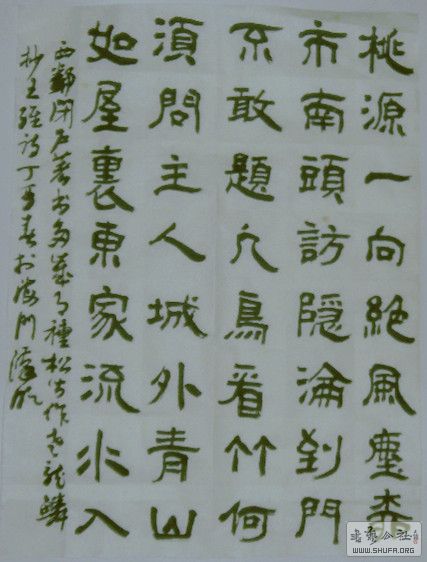 桃源一向絶風塵柳
市南頭訪隱淪到門
不敢題凡鳥看竹何
須問主人城外青山
如屋裏東家流水入
西鄰閉户著書多歲月種松皆作老龍鱗
抄王維詩丁亥春於海門
公社
WWW.SHUFA.ORG